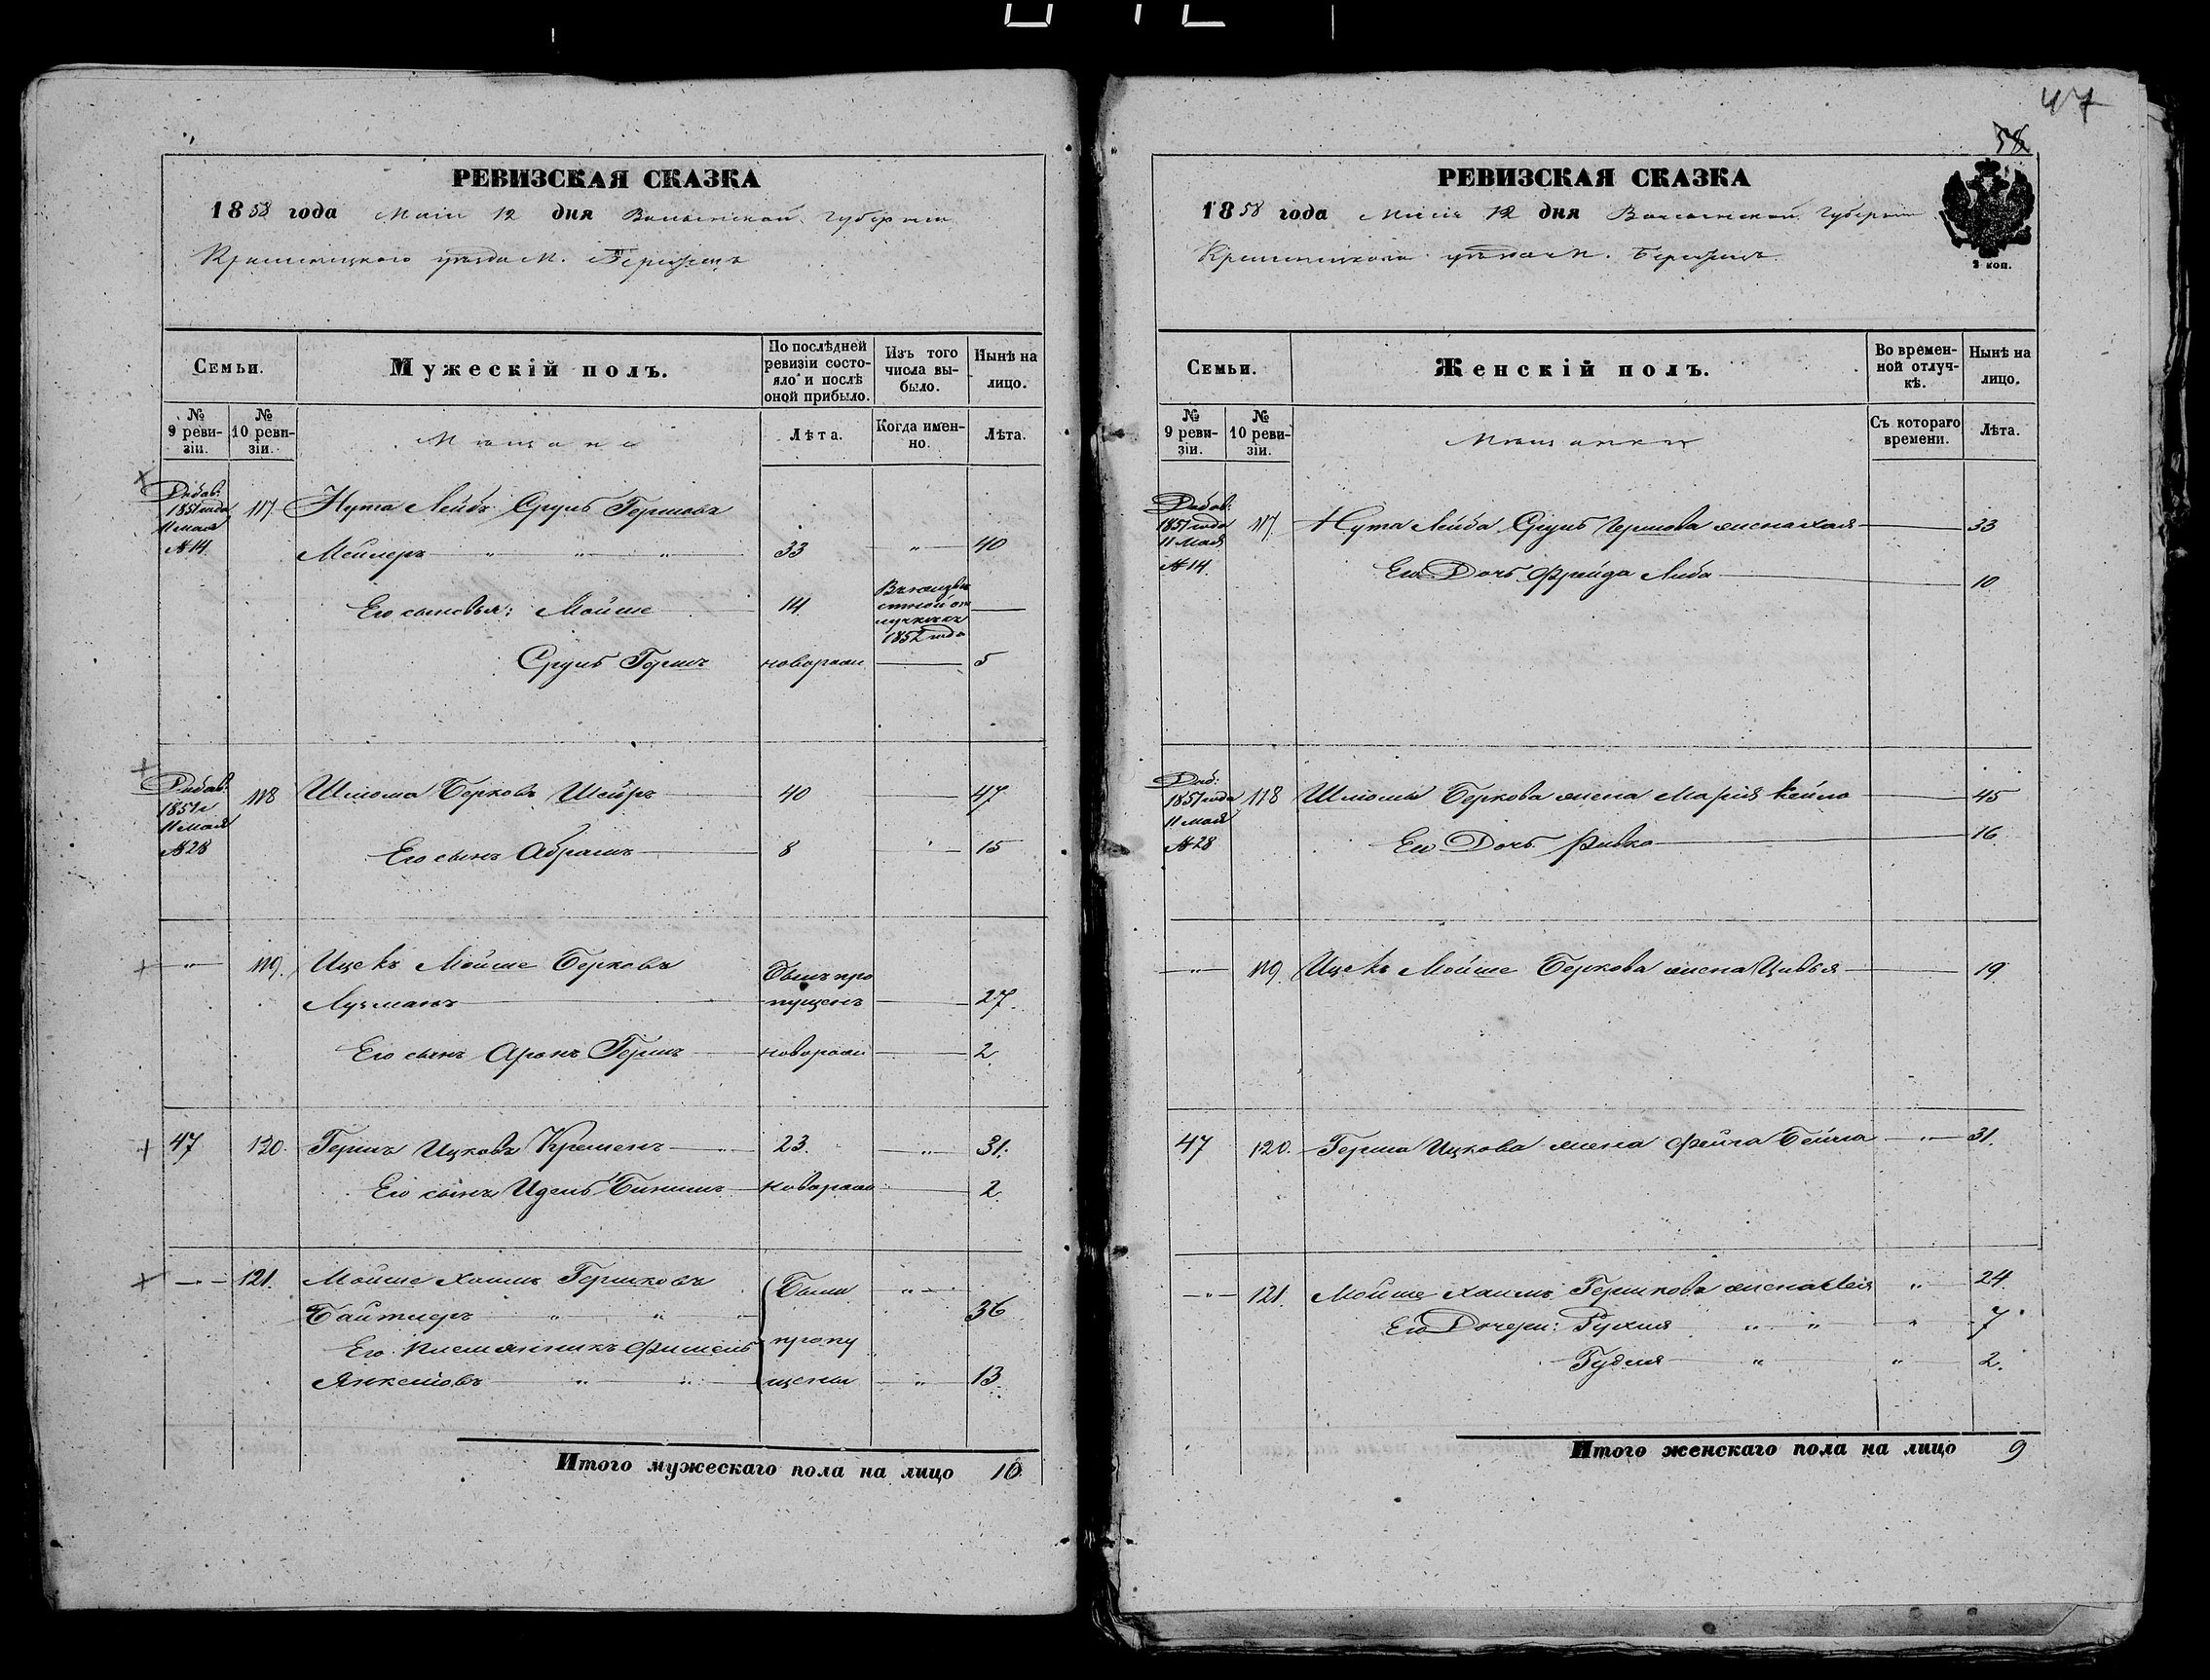 47
58
РЕВИЗСКАЯ СКАЗКА
1858 года Маія 12 дня Волынской губерніи
Кременецкаго уѣзда М. Бережецъ
Семьи.
Мужескій полъ.
По послѣдней ревизіи состояло и послѣ оной прибыло.
Изъ того числа выбыло.
Нынѣ на лицо.
№ 9 ревизіи.
№ 10 ревизіи.
Мѣщане
Лѣта.
Когда именно.
Лѣта.
Добав: 1851 года 11 Мая № 14 117 Нута Лейбъ Сруль Гершовъ
Мейлеръ " " " 33 " 40
Его сыновья: Мойше 14 Въ неизвѣстной отлучкѣ съ 1852 года
Сруль Гершъ новорож 5
Добав: 1851 г 11 Мая № 28 118 Шлиома Берковъ Шейръ 40 47
Его сынъ Абрамъ 8 15
" 119. Ицекъ Мойше Берковъ Былъ про
Лучманъ пущенъ 27.
Его сынъ Аронъ Гершъ новорож 2
47 120. Гершъ Ицковъ Кременъ 23. " 31.
Его сынъ Идель Бинишъ новорож 2.
" 121. Мойше Хаимъ Гершковъ Были "
Байтлеръ " " 36
Его племянникъ Фишель пропу
Янкелювъ " " щены " 13
Итого мужескаго пола на лицо 10
РЕВИЗСКАЯ СКАЗКА
1858 года Маія 12 дня Волынской губерніи
Кременецкаго уѣзда М. Бережецъ
2 коп.
Семьи.
Женскій полъ.
Во временной отлучкѣ.
Нынѣ на лицо.
№ 9 ревизіи.
№ 10 ревизіи.
Мѣщанки
Съ котораго времени.
Лѣта.
Добав: 1851 года 11 Мая № 14. 117. Нута Лейба Сруль Гершова жена Хая 33
Его Дочь Фрейда Либа 10
Доб: 1851 года 11 Мая № 28 118 Шлиомы Беркова жена Марія Кейла 45
Его Дочь Ривка 16
" 119. Ицекъ Мойше Беркова жена Цивья 19
47 120. Герша Ицкова жена Фейга Бейла " 31.
" 121. Мойше Хаимъ Гершкова жена Лея " 24.
Его Дочери: Рухля " " " 7
Гудля " " 2.
Итого женскаго пола на лицо 9